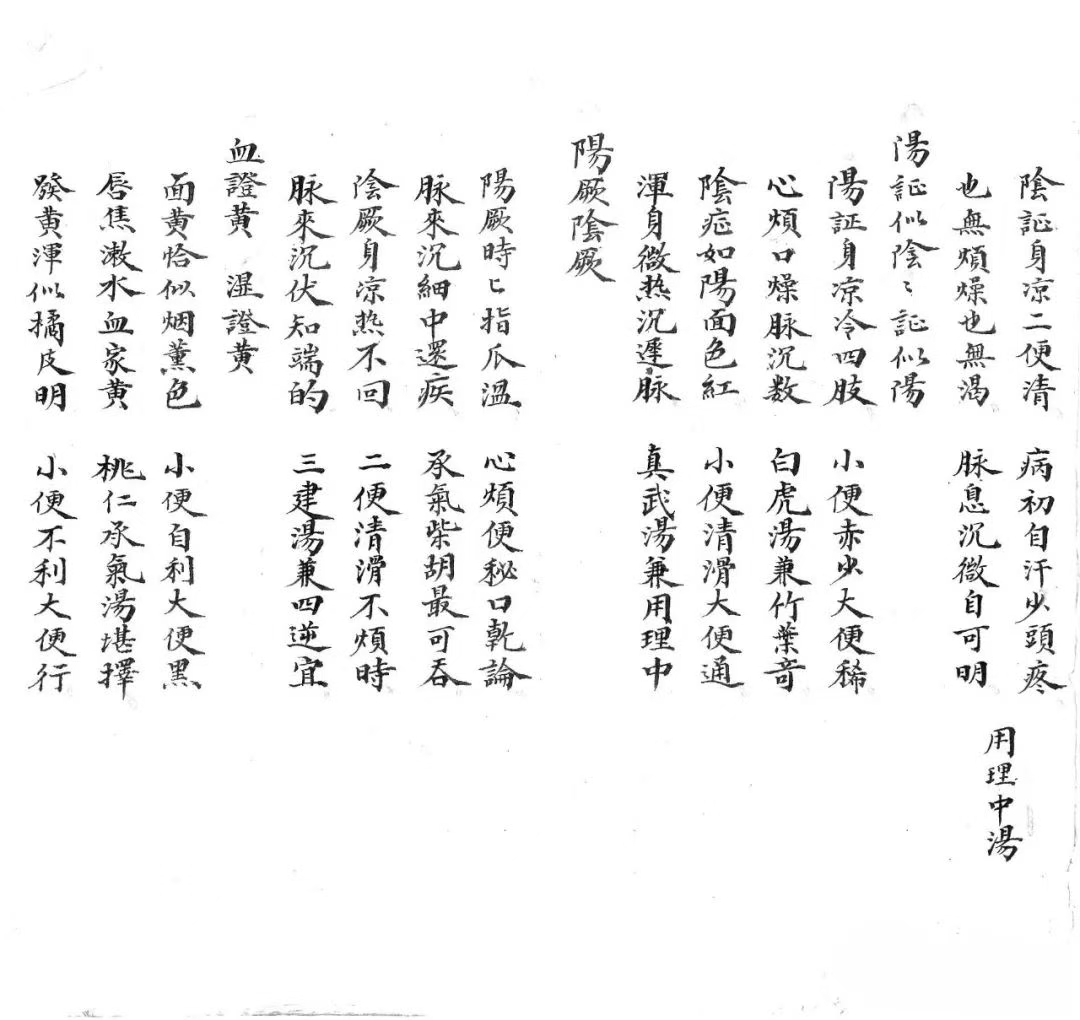 陰証身凉二便清　病初自汗少頭疼
也無煩燥也無渴　脉息沉微自可明
用理中湯
湯証似陰〻証似陽
陽証身凉冷四肢　小便赤少大便稀
心煩口燥脉沉数　白虎湯兼竹葉竒
陰症如陽面色紅　小便清滑大便通
渾身微热沉遲脉　真武湯兼用理中
陽厥陰厥
陽厥時〻指爪温　心煩便秘口乾論
脉來沉細中還疾　承氣柴胡最可吞
陰厥身凉热不回　二便清滑不煩時
脉來沉伏知端的　三建湯兼四逆宜
血證黄　濕證黄
面黄恰似烟薰色　小便自利大便黑
唇焦漱水血家黄　桃仁承氣湯堪擇
發黄渾似橘皮明　小便不利大便行